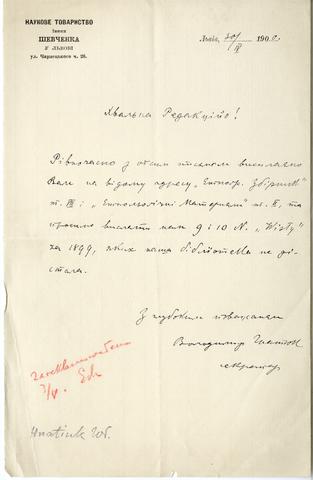 НАУКОВЕ ТОВАРИСТВО
імени
ШЕВЧЕНКА
У ЛЬВОВІ
ул. Чарнецкого ч. 26.
Львів, 30/IV 1900
Хвальна Редакціє!
Рівночасно з отсим письмом висилаємо
Вам на відому адресу „Етноґр. Збірник"
т. і „Етнольоґічні Материяли" т. II, та
просимо вислати нам 9 і 10 N. „Wisły"
за 1899, яких наша бібліотека не ді-
стала.
З глубоким поважанєм
Володимир Гнатюк
секретар
3/V.
Hnatiuk W.